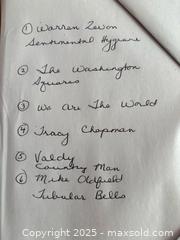 ① Warren Zevon
Sentimental Hygiene
② The Washington
Squares
③ We Are The World
④ Tracy Chapman
⑤ Valdy
Country Man
⑥ Mike Oldfield
Tubular Bells
© Copyright 2025 - maxsold.com